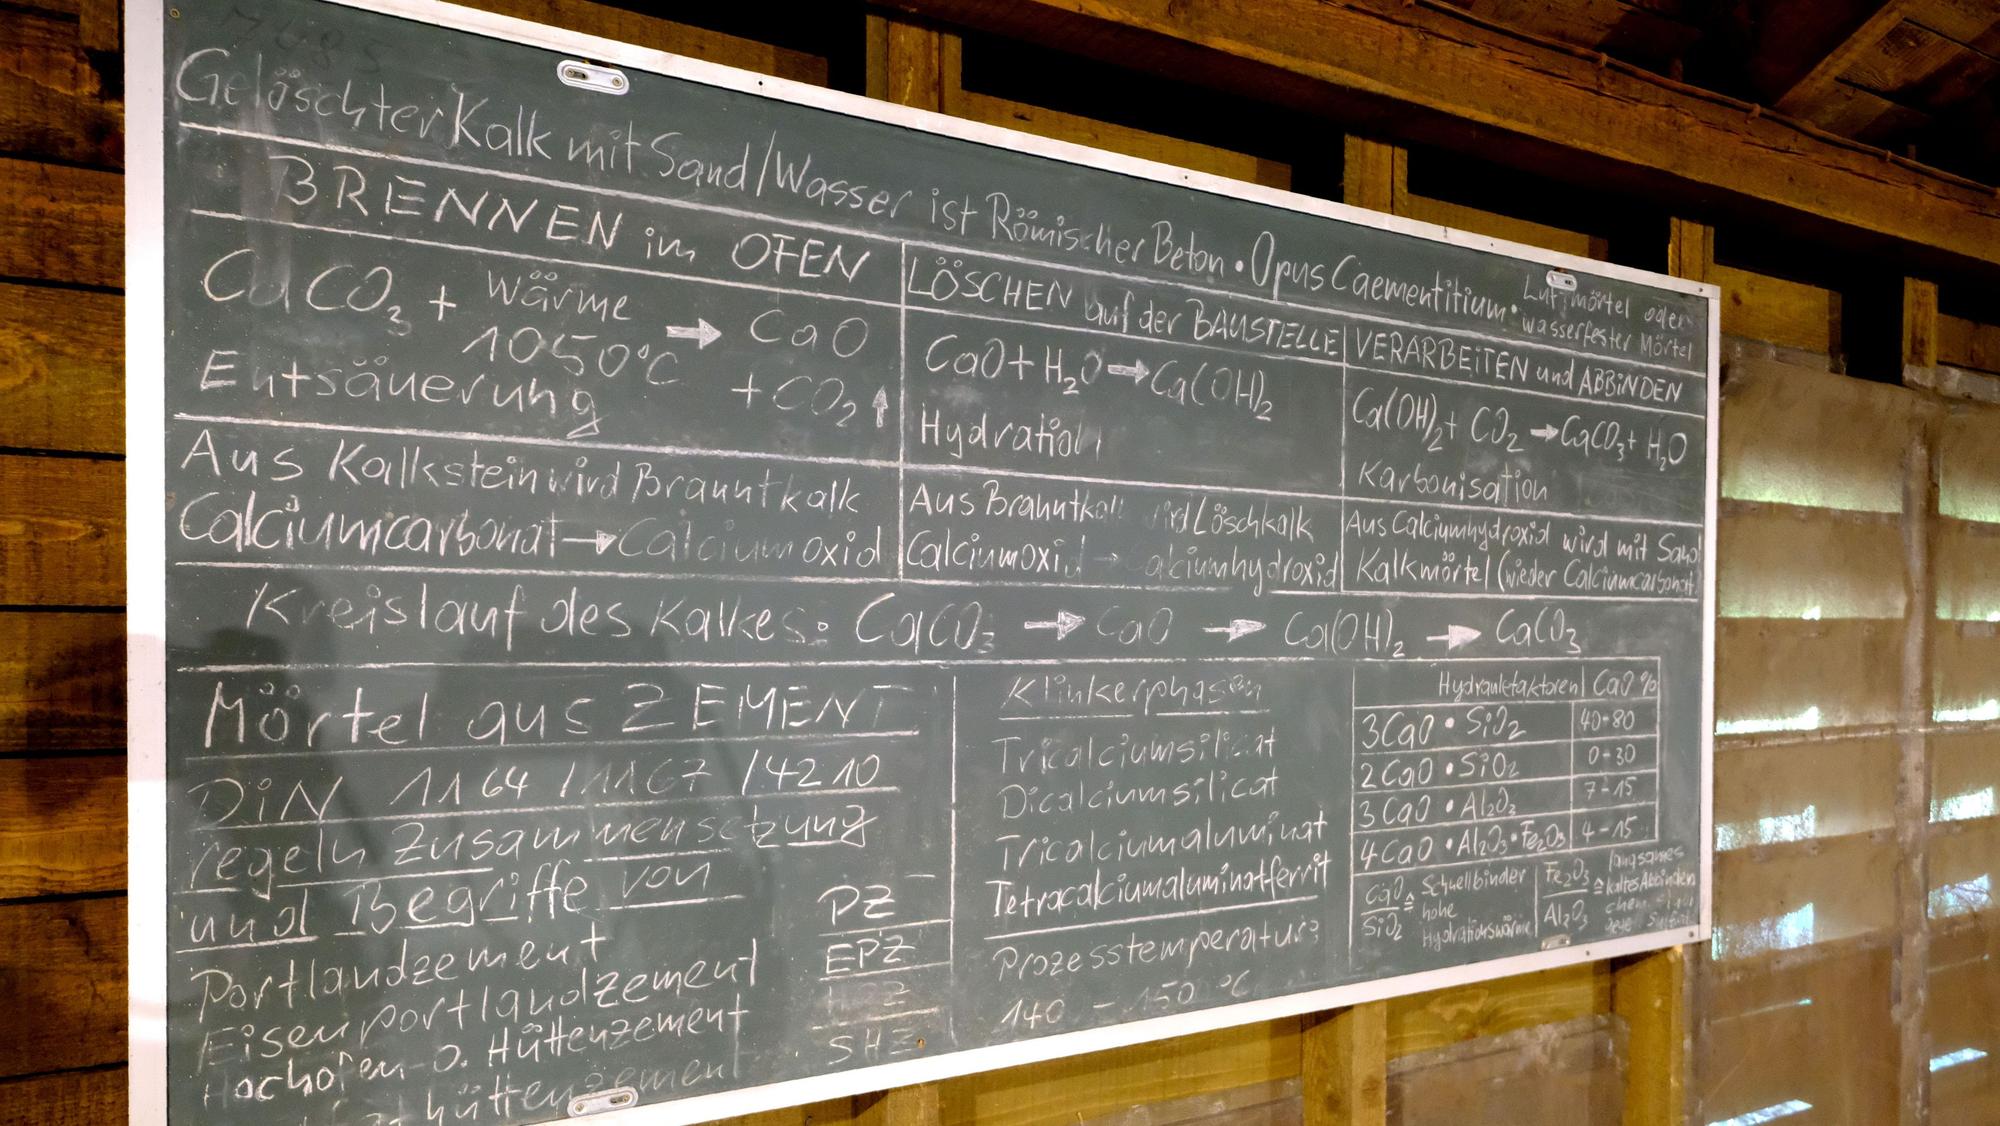 Gelöschter Kalk mit Sand/Wasser ist Römischer Beton • Opus Caementitium •
Luftmörtel oder
wasserfester Mörtel
BRENNEN im OFEN
CaCO₃ + Wärme 1050°C → CaO
+ CO₂ ↑
Entsäuerung
Aus Kalkstein wird Branntkalk
Calciumcarbonat → Calciumoxid
LÖSCHEN auf der BAUSTELLE
CaO + H₂O → Ca(OH)₂
Hydration
Aus Branntkalk wird Löschkalk
Calciumoxid → Calciumhydroxid
VERARBEITEN und ABBINDEN
Ca(OH)₂ + CO₂ → CaCO₃ + H₂O
Karbonisation
Aus Calciumhydroxid wird mit Sand
Kalkmörtel (wieder Calciumcarbonat)
Kreislauf des Kalkes: CaCO₃ → CaO → Ca(OH)₂ → CaCO₃
Mörtel aus ZEMENT
DiN 1164 / 1167 / 4210
regeln Zusammensetzung
und Begriffe von
Portlandzement PZ
Eisenportlandzement EPZ
Hochofen- o. Hüttenzement
hüttenzement SHZ
Klinkerphasen
Tricalciumsilicat
Dicalciumsilicat
Tricalciumaluminat
Tetracalciumaluminatferrit
Prozesstemperatur:
140 - 150 °C
Hydraulefaktoren CaO %
3CaO • SiO₂ 40-80
2CaO • SiO₂ 0-30
3CaO • Al₂O₃ 7-15
4CaO • Al₂O₃ • Fe₂O₃ 4-15
CaO/SiO₂ ≙ Schnellbinder
hohe
Hydrationswärme
Fe₂O₃/Al₂O₃ ≙ langsames
kaltes Abbinden
chem.